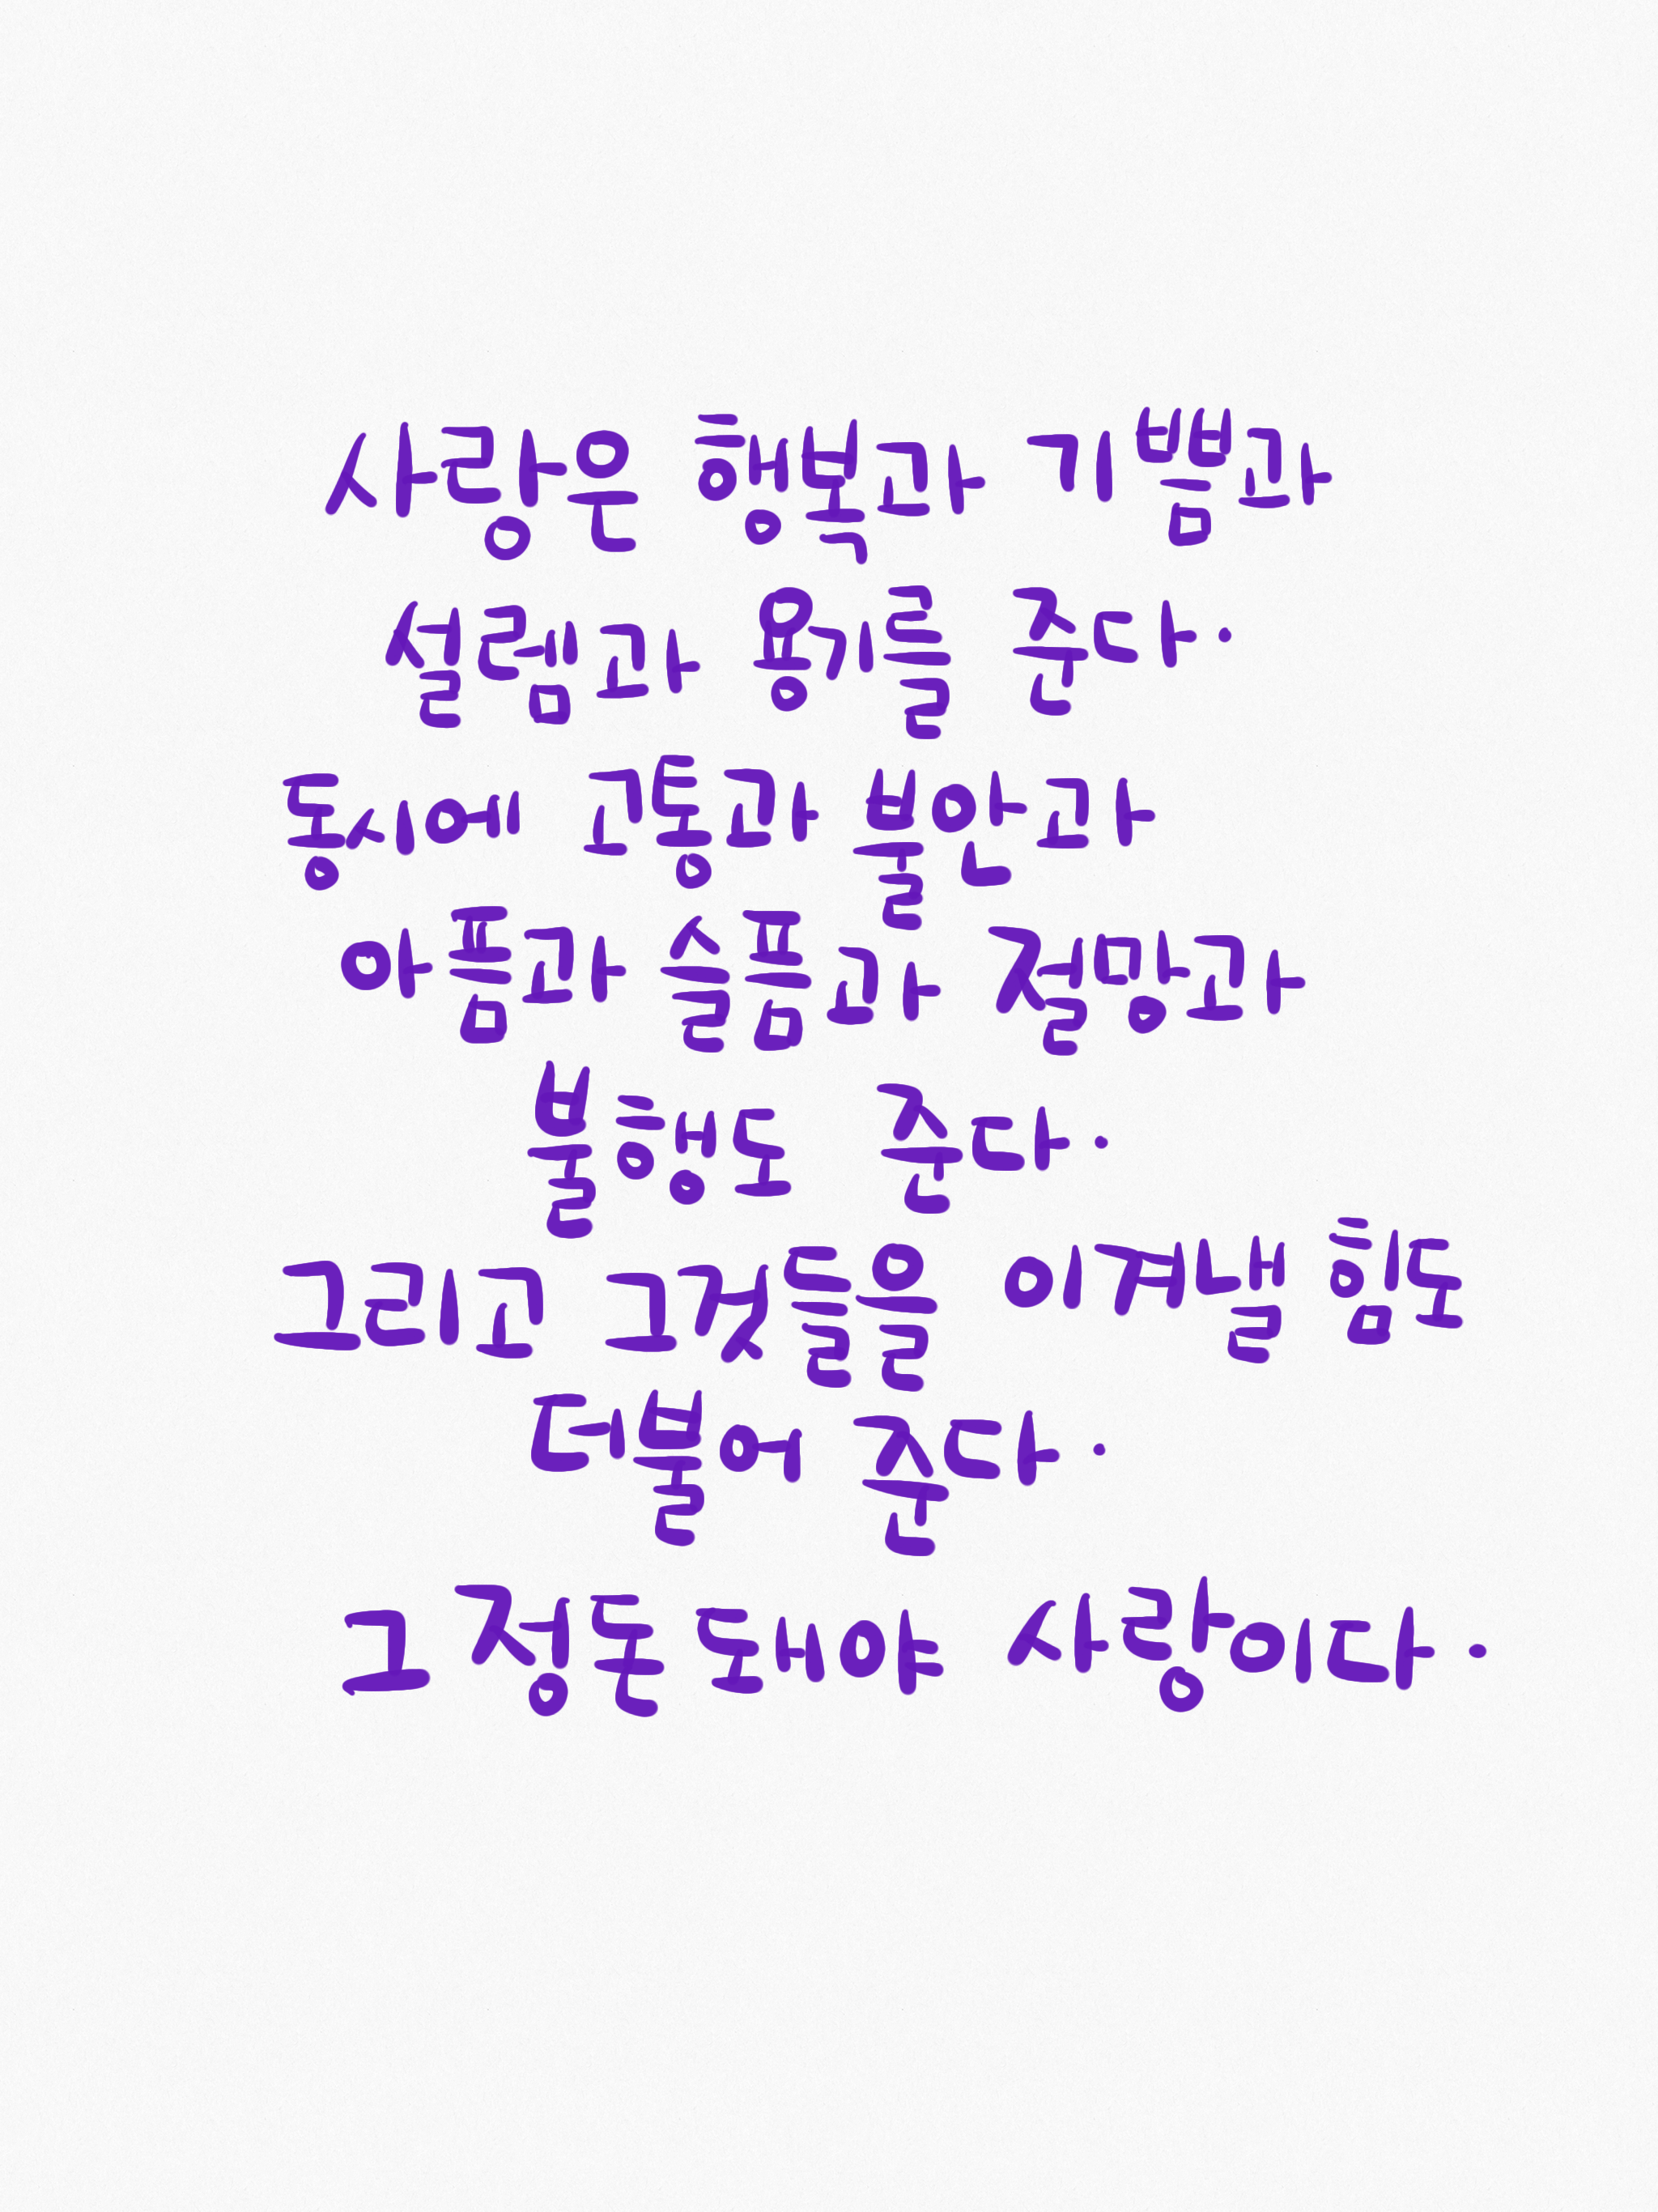 사랑은 행복과 기쁨과
설렘과 용기를 준다.
동시에 고통과 불안과
아픔과 슬픔과 절망과
불행도 준다.
그리고 그것들을 이겨낼 힘도
더불어 준다.
그 정돈 돼야 사랑이다.